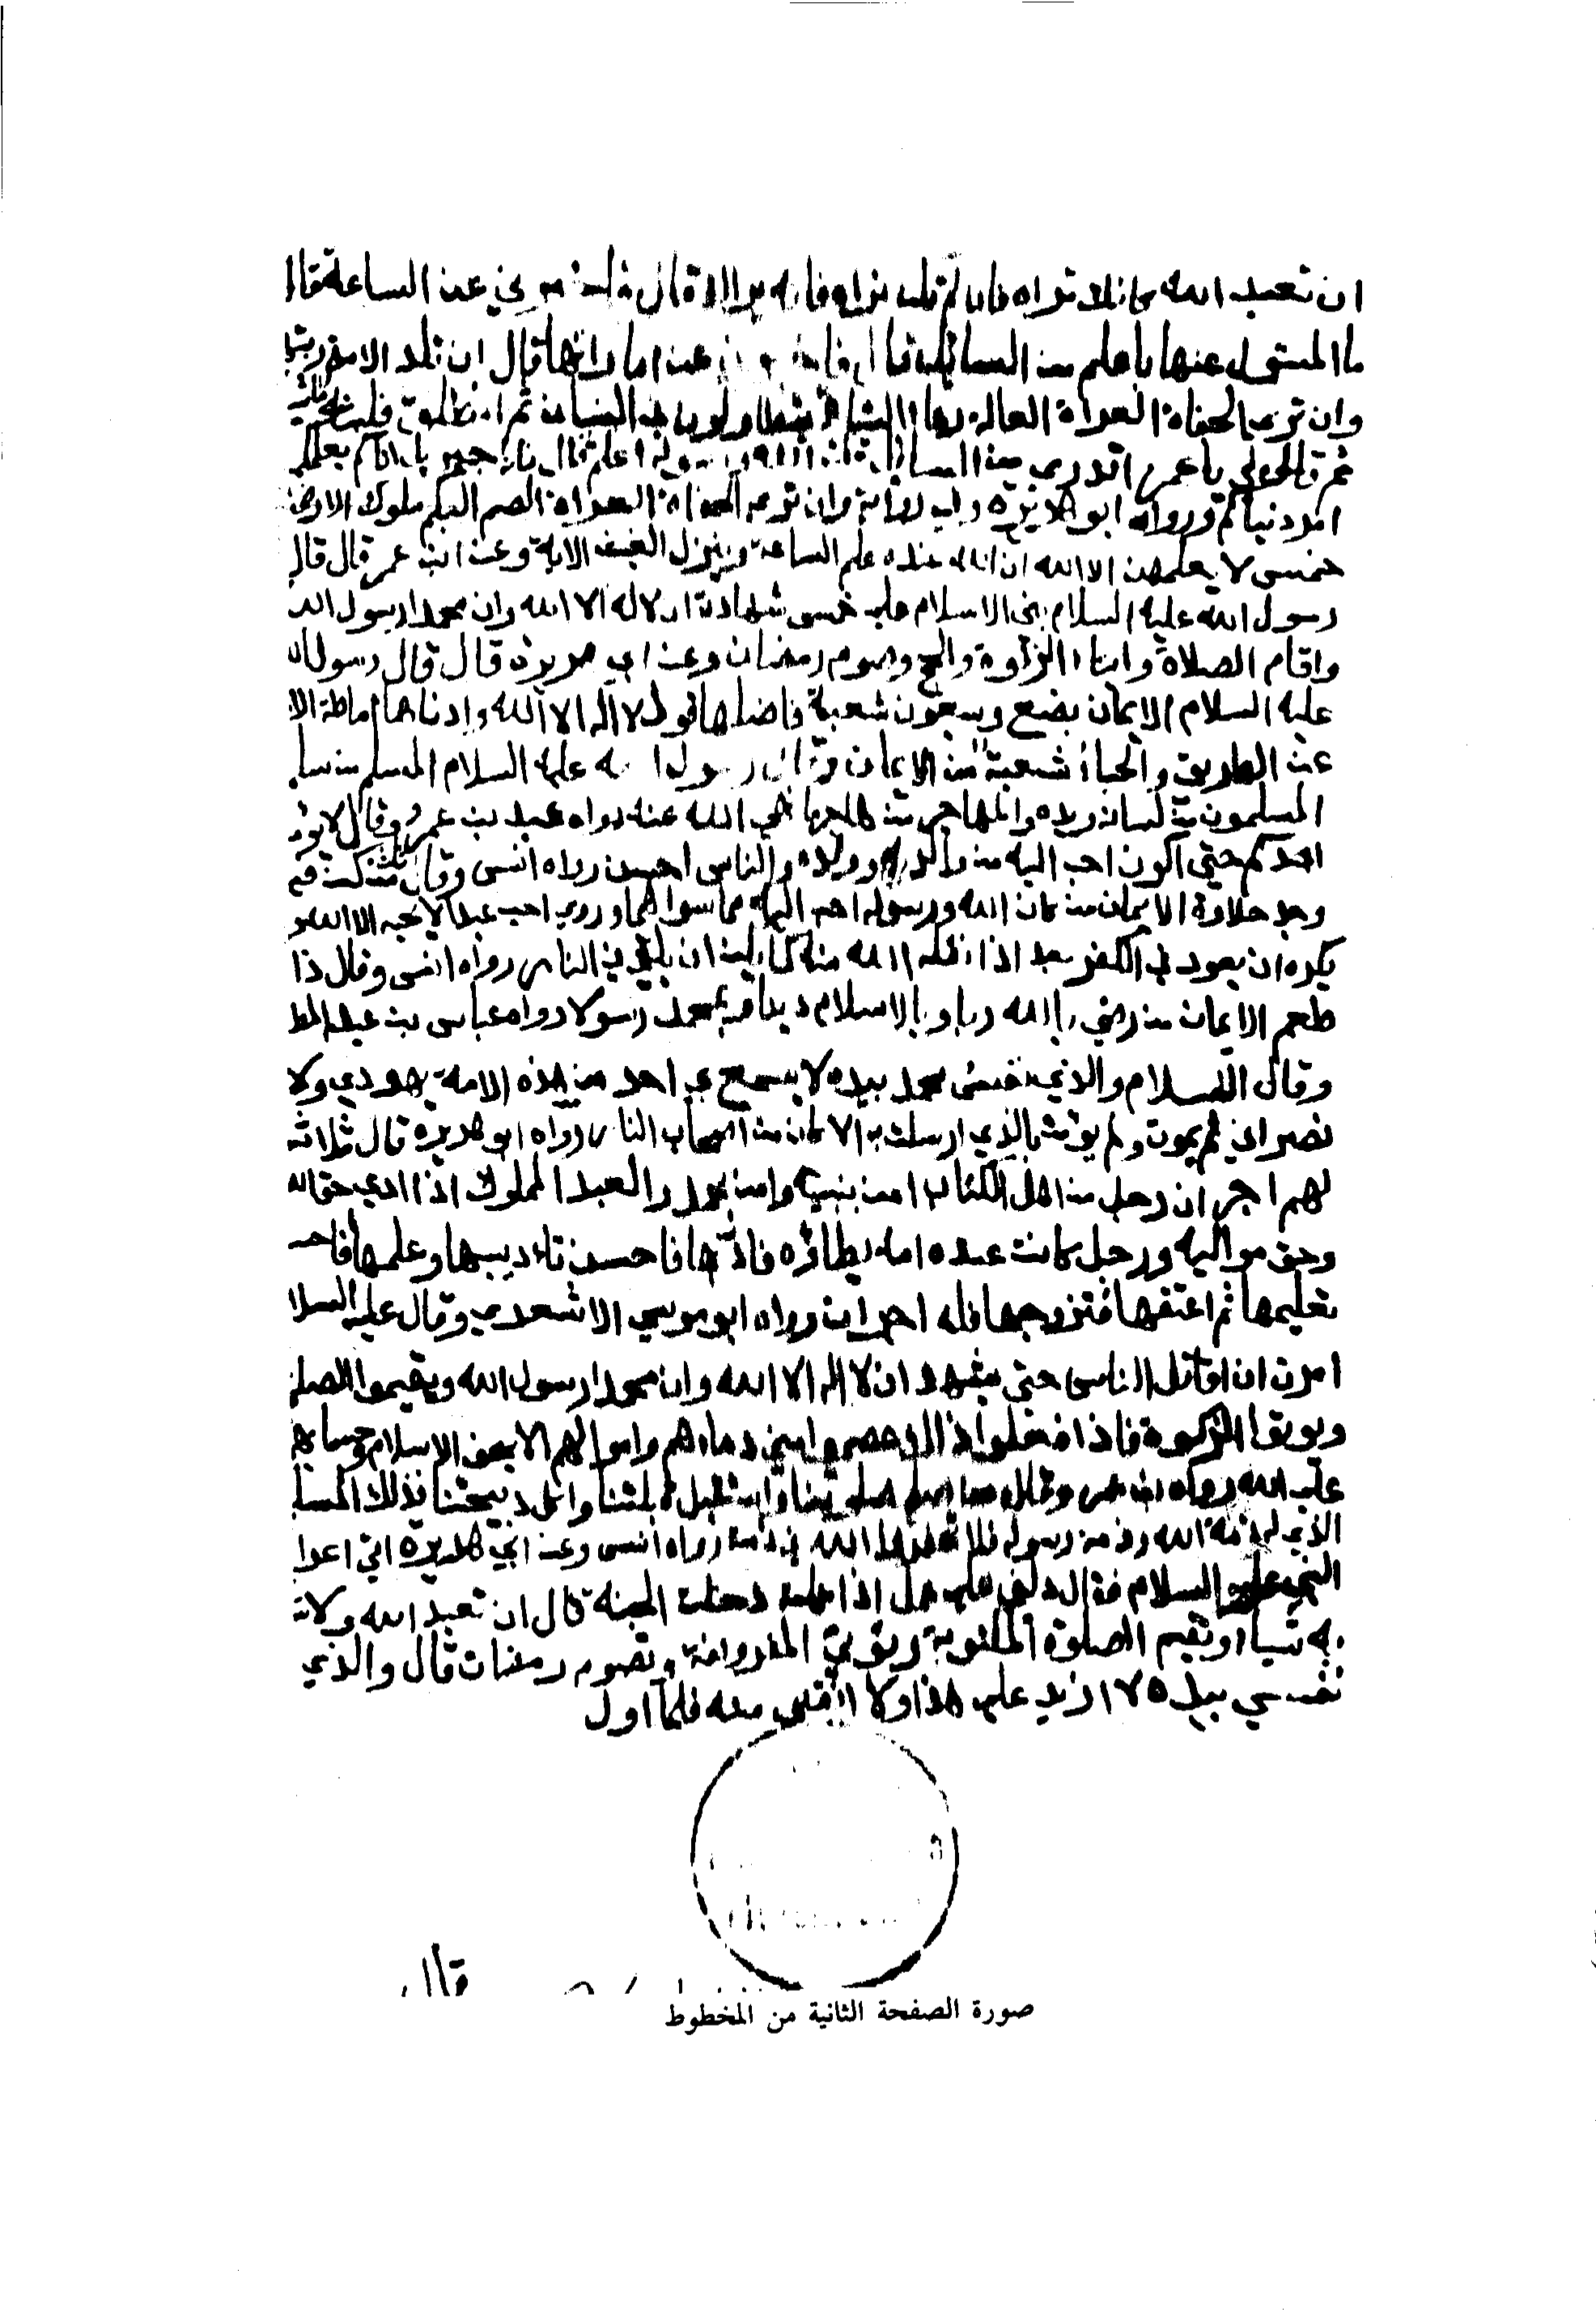 ان تعبد الله كانك تراه فان لم تكن تراه فانه يراك قال فاخبرني عن الساعة قال
ما المسئول عنها باعلم من السائل قال فاخبرني عن اماراتها قال ان تلد الامة ربتها
وان تري الحفاة العراة العالة رعاء الشاة يتطاولون في البنيان ثم انطلق فلبثت
ثم قال لي يا عمر اتدري من السائل قلت الله ورسوله اعلم قال فانه جبريل اتاكم يعلمكم
امر دينكم ورواه ابو هريرة وفي رواية وان تري الحفاة العراة الصم البكم ملوك الارض
خمس لا يعلمهن الا الله ان الله عنده علم الساعة وينزل الغيث الاية وعن ابن عمر قال قال
رسول الله عليه السلام بني الاسلام علي خمس شهادة ان لا اله الا الله وان محمدا رسول الله
واقام الصلاة وايتاء الزكوة والحج وصوم رمضان وعن ابي هريرة قال قال رسول الله
عليه السلام الايمان بضع وسبعون شعبة فافضلها قول لا اله الا الله وادناها اماطة الا
عن الطريق والحياء شعبة من الايمان وقال رسول الله عليه السلام المسلم من سلم
المسلمون من لسانه ويده والمهاجر من هاجر ما نهي الله عنه رواه عبد بن عمر وقال لا يؤمن
احدكم حتي اكون احب اليه من والده وولده والناس اجمعين رواه انس وقال ثلث من كن فيه
وجد حلاوة الايمان من كان الله ورسوله احب اليه مما سواهما وروي احب عبدا لا يحبه الا الله و
يكره ان يعود في الكفر بعد اذ انقذه الله منه كما يكره ان يلقي في النار رواه انس وقال ذا
طعم الايمان من رضي بالله ربا وبالاسلام دينا وبمحمد رسولا رواه عباس بن عبد المط
وقال السلام والذي نفس محمد بيده لا يسمع بي احد من هذه الامة يهودي ولا
نصراني ثم يموت ولم يؤمن بالذي ارسلت به الا كان من اصحاب النار رواه ابو هريرة قال ثلاثة
لهم اجران رجل من اهل الكتاب امن بنبيه وامن بمحمد والعبد المملوك اذا ادي حق الله
وحق مواليه ورجل كانت عنده امة يطاؤه فادبها فاحسن تاديبها وعلمها فاحسن
تعليمها ثم اعتقها فتزوجها فله اجران رواه ابو موسي الاشعري وقال عليه السلا
امرت ان اقاتل الناس حتي يشهد ان لا اله الا الله وان محمدا رسول الله ويقيموا الصلو
ويوتوا الزكوة فاذا فعلوا ذلك عصموا مني دماءهم واموالهم الا بحق الاسلام وحسابهم
علي الله رواه ابن عمر وقال من صلي صلوتنا واستقبل قبلتنا واكل ذبيحتنا فذلك المسلم
الذي له ذمة الله وذمة رسوله فلا تخفروا الله في ذمته رواه انس وعن ابي هريرة اتي اعرا
النبي عليه السلام فقال دلني علي عمل اذا عملته دخلت الجنة قال ان تعبد الله ولا تشرك
به شيئا وتقيم الصلوة المكتوبة وتؤتي المفروضة وتصوم رمضان قال والذي
نفسي بيده لا ازيد علي هذا ولا انقص منه فلما اول
قال
صورة الصفحة الثانية من المخطوط